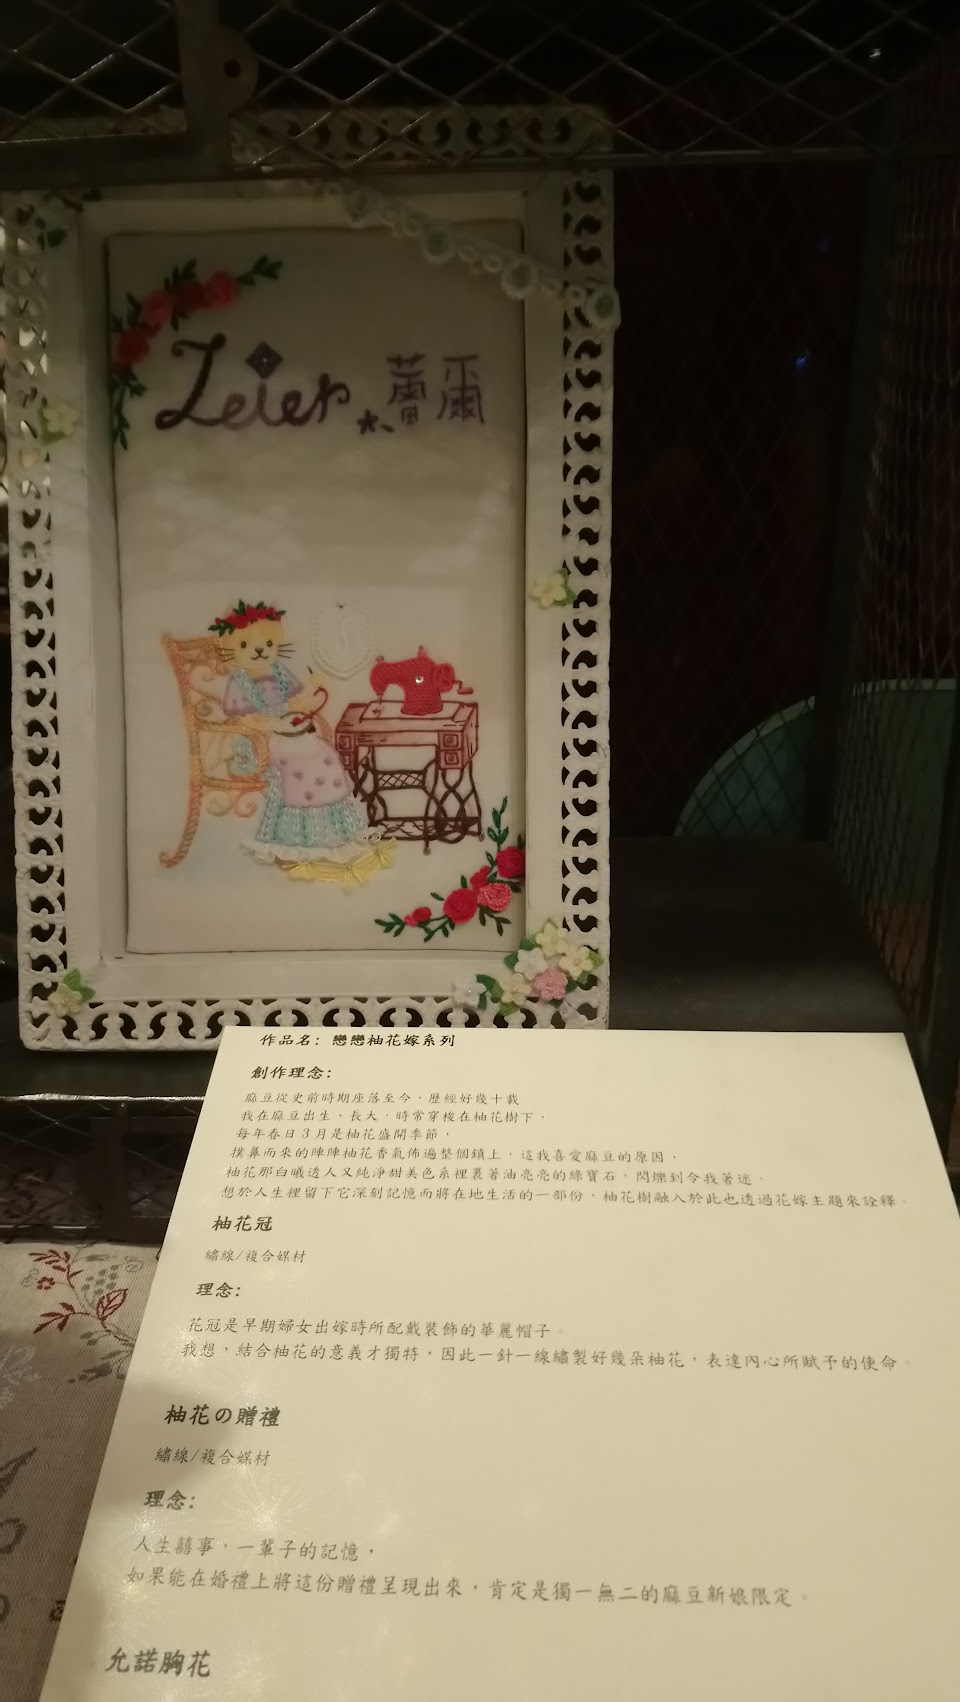 Zeier 蕾爾
作品名: 戀戀柚花嫁系列
創作理念:
麻豆從史前時期座落至今，歷經好幾十載
我在麻豆出生、長大，時常穿梭在柚花樹下，
每年春日3月是柚花盛開季節，
撲鼻而來的陣陣柚花香氣佈遍整個鎮上，這我喜愛麻豆的原因，
柚花那白曦透人又純淨甜美色系裡裹著油亮亮的綠寶石，閃爍到令我著迷，
想於人生裡留下它深刻記憶而將在地生活的一部份，柚花樹融入於此也透過花嫁主題來詮釋。
柚花冠
繡線/複合媒材
理念:
花冠是早期婦女出嫁時所配戴裝飾的華麗帽子。
我想，結合柚花的意義才獨特，因此一針一線繡製好幾朵柚花，表達內心所賦予的使命。
柚花の贈禮
繡線/複合媒材
理念:
人生囍事，一輩子的記憶，
如果能在婚禮上將這份贈禮呈現出來，肯定是獨一無二的麻豆新娘限定。
允諾胸花